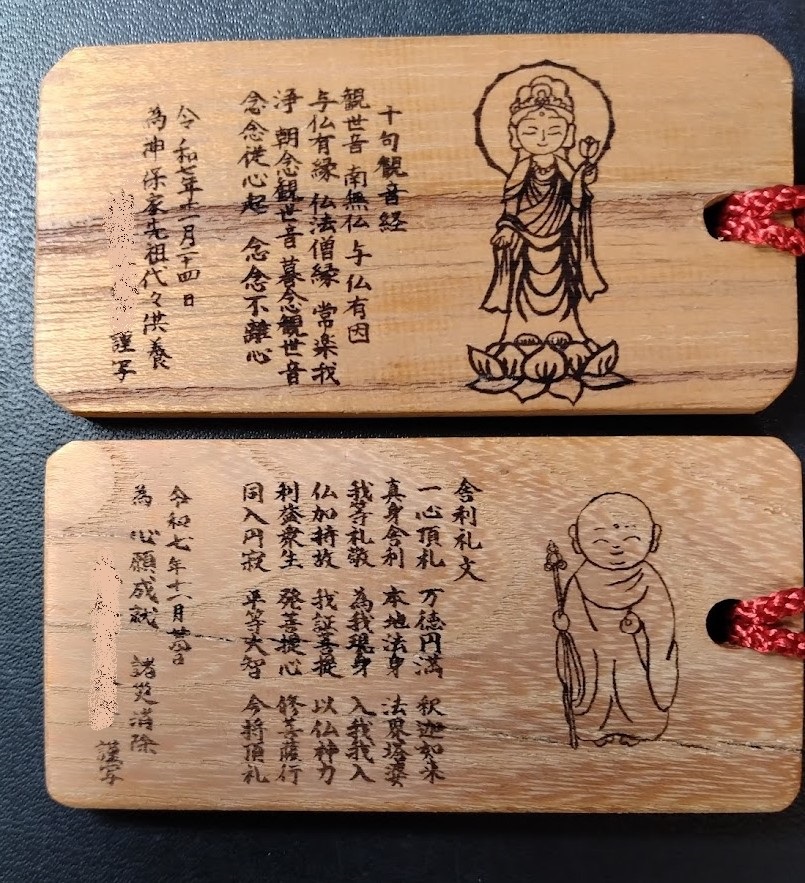 十句観音経
観世音 南無仏 与仏有因
与仏有縁 仏法僧縁 常楽我
浄 朝念観世音 暮念観世音
念念従心起 念念不離心
令和七年十一月二十四日
為神保家先祖代々供養
謹写
舎利礼文
一心頂礼 万徳円満 釈迦如来
真身舎利 本地法身 法界塔婆
我等礼敬 為我現身 入我我入
仏加持故 我証菩提 以仏神力
利益衆生 発菩提心 修菩薩行
同入円寂 平等大智 今将頂礼
令和七年十一月廿四日
為 心願成就 諸災消除
謹写